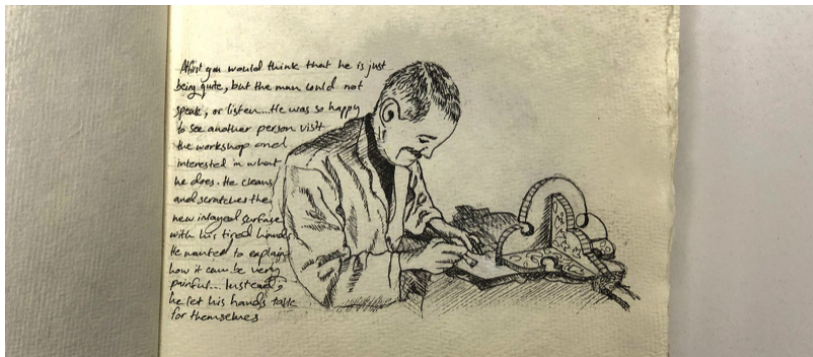 Afirst you would think that he is just
being quite, but the man could not
speak, or listen... He was so happy
to see another person visit
the workshop and
interested in what
he does. He cleans
and scratches the
new inlayed surface
with his tired hands
He wanted to explain
how it can be very
painful... Instead,
he let his hands talk
for themselves